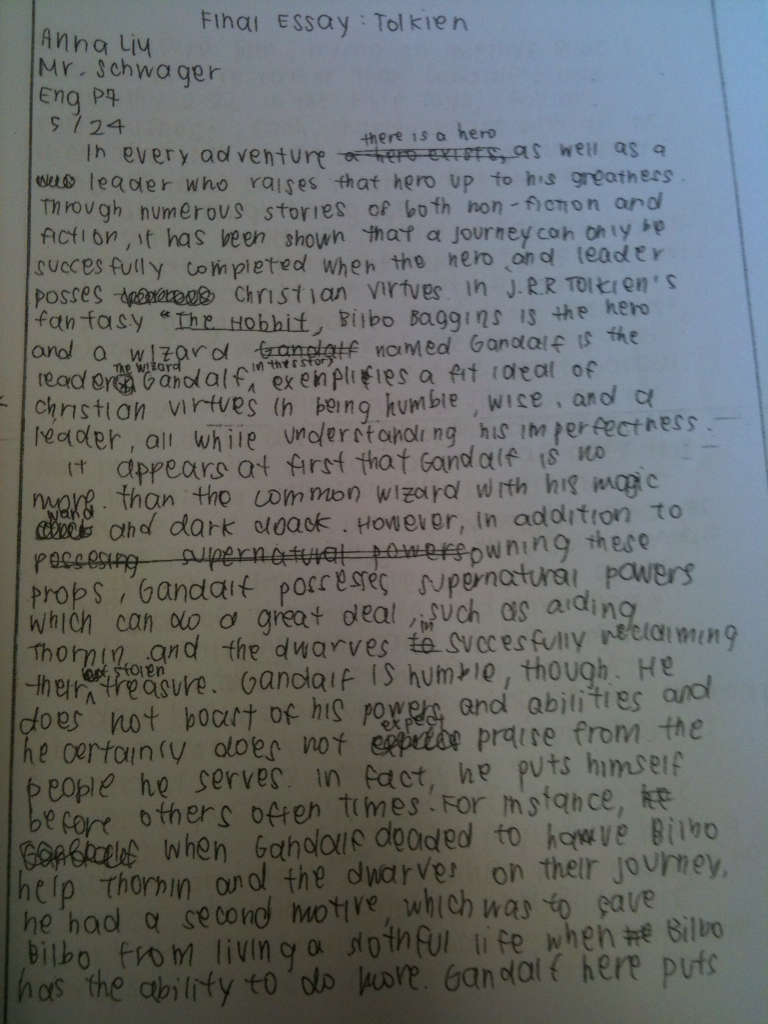 Final Essay: Tolkien
Anna Liu
Mr. Schwager
Eng P7
5/24
there is a hero
In every adventure a hero exists, as well as a
leader who raises that hero up to his greatness.
Through numerous stories of both non-fiction and
fiction, it has been shown that a journey can only be
succesfully completed when the hero and leader
posses Christian virtues. In J.R.R Tolkien's
fantasy "The Hobbit, Bilbo Baggins is the hero
and a wizard Gandalf named Gandalf is the
The wizard in the story
leader. Gandalf, exemplifies a fit ideal of
christian virtues in being humble, wise, and a
leader, all while understanding his imperfectness.
It appears at first that Gandalf is no
more than the common wizard with his magic
wand
and dark cloack. However, in addition to
possesing supernatural powers owning these
props, Gandalf possesses supernatural powers
which can do a great deal, such as aiding
in
Thornin and the dwarves to succesfully reclaiming
stolen
their treasure. Gandalf is humble, though. He
does not boast of his powers and abilities and
expect
he certainly does not praise from the
people he serves. In fact, he puts himself
before others often times. For instance, he
when Gandalf deaded to have Bilbo
help Thornin and the dwarves on their journey,
he had a second motive, which was to save
Bilbo from living a slothful life when he Bilbo
has the ability to do more. Gandalf here puts